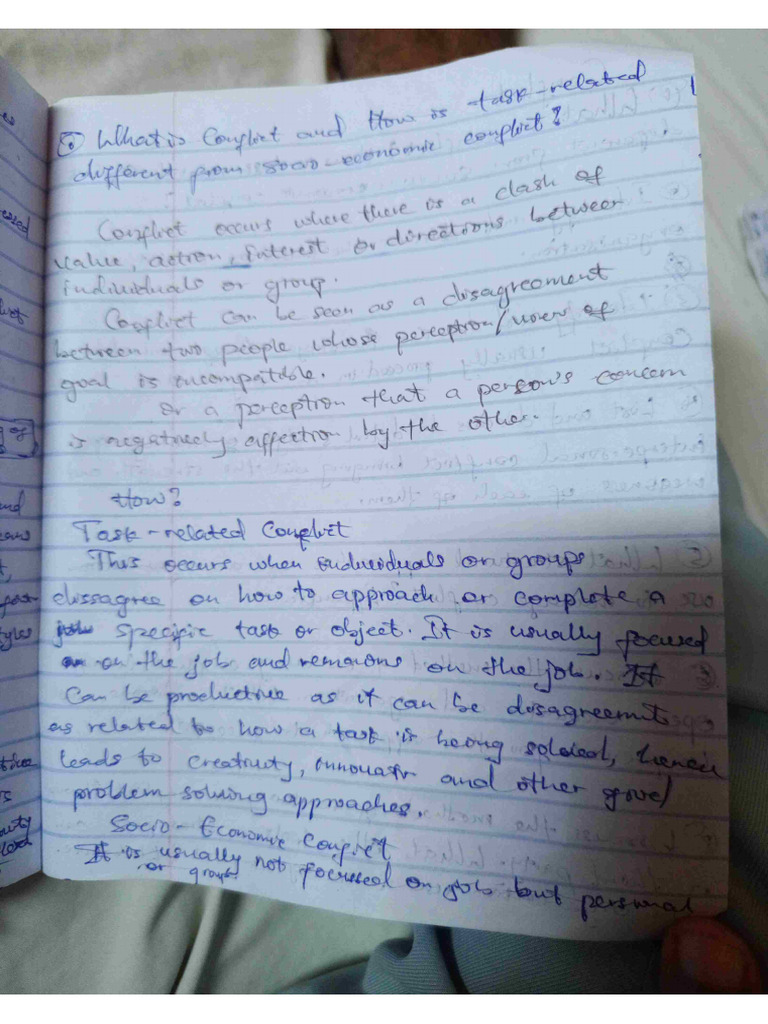 What is Conflict and How is task-related 1
different from socio-economic conflict?
Conflict occurs where there is a clash of
value, action, interest or directions between
individuals or group.
Conflict can be seen as a disagreement
between two people whose perception/views of
goal is incompatible.
or a perception that a person's concern
is negatively affection by the other.
How?
Task-related Conflict
This occurs when individuals or groups
dissagree on how to approach or complete a
specific task or object. It is usually focused
on the job and remains on the job. It
can be productive as it can be disagreemt
as related to how a task is being solded, hence
leads to creativity, and other good
problem solving approaches.
Socio-Economic Conflict
It is usually not focussed on job but personal
or group